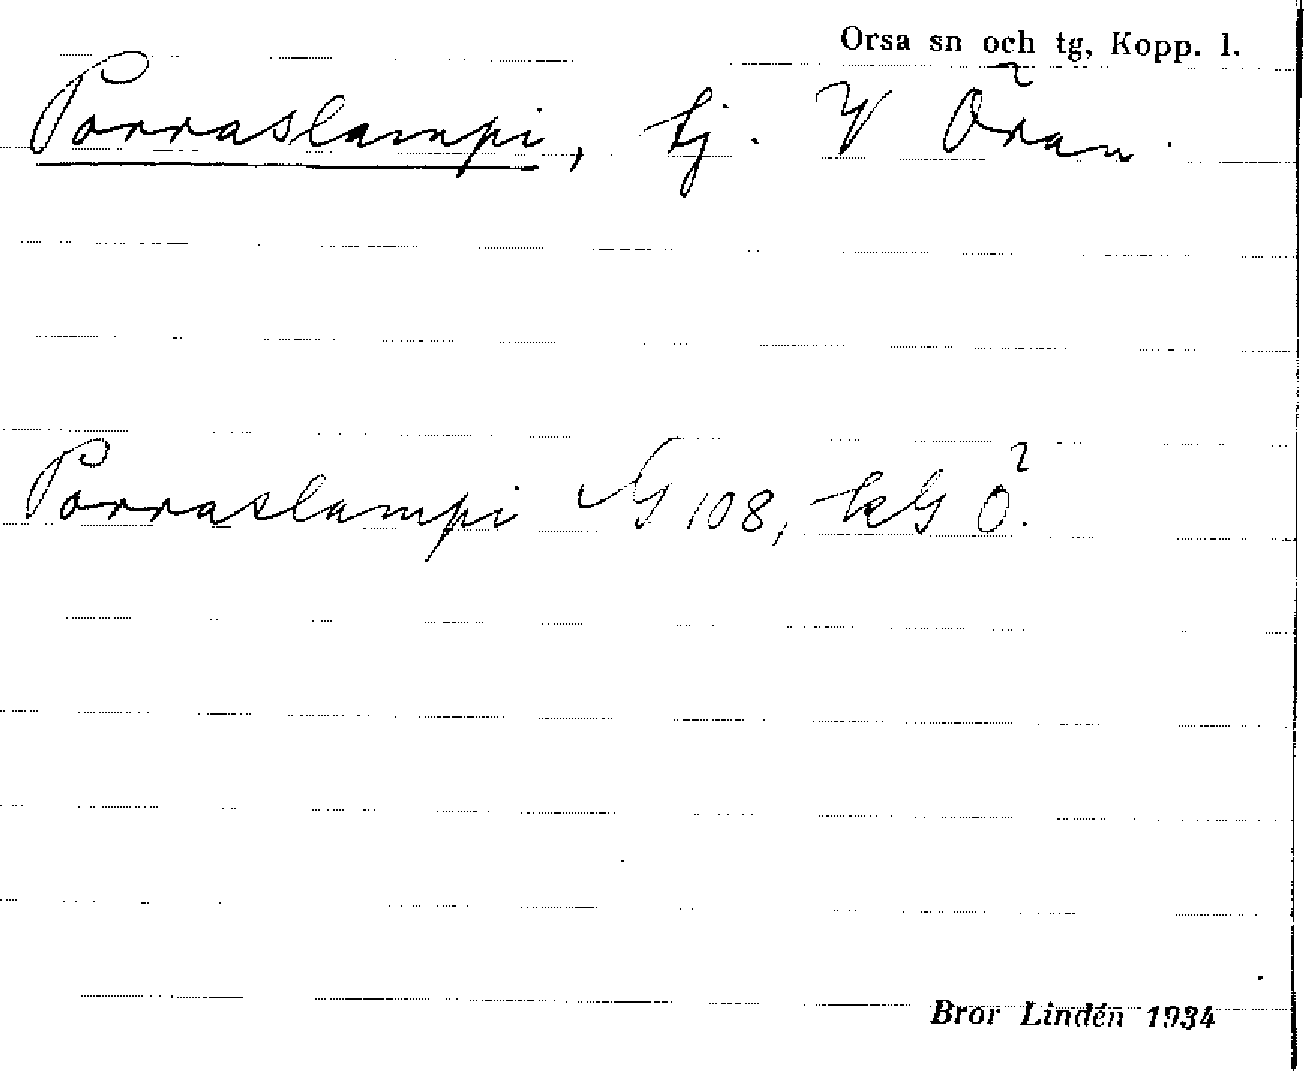 Orsa sn och tg, Kopp. l.
Porraslampi, tj. V Öran.
Porraslampi NG 108, kG Ö.
Bror Lindén 1934